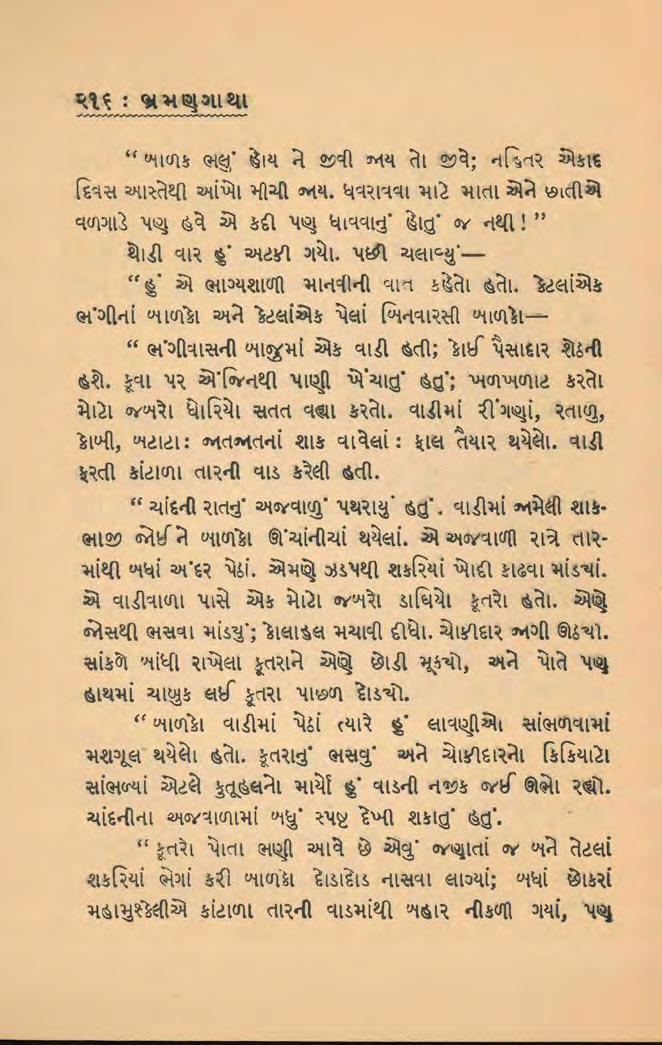 ૨૧૬ : ભ્રમણગાથા
“ બાળક ભલું હોય ને જીવી જાય તો જીવે; નહિતર એકાદ
દિવસ આસ્તેથી આંખો મીચી જાય. ધવરાવવા માટે માતા એને છાતીએ
વળગાડે પણ હવે એ કદી પણ ધાવવાનું હોતું જ નથી ! ”
થોડી વાર હું અટકી ગયો. પછી ચલાવ્યું—
“ હું એ ભાગ્યશાળી માનવીની વાત કહેતો હતો. કેટલાંએક
ભંગીનાં બાળકો અને કેટલાંએક પેલાં બિનવારસી બાળકો—
“ ભંગીવાસની બાજુમાં એક વાડી હતી; કોઈ પૈસાદાર શેઠની
હશે. કૂવા પર એંજિનથી પાણી ખેંચાતું હતું; ખળખળાટ કરતો
મોટો જબરો ધોરિયો સતત વહ્યા કરતો. વાડીમાં રીંગણાં, રતાળુ,
કોબી, બટાટા : જાતજાતનાં શાક વાવેલાં : ફાલ તૈયાર થયેલો. વાડી
ફરતી કાંટાળા તારની વાડ કરેલી હતી.
“ ચાંદની રાતનું અજવાળું પથરાયું હતું. વાડીમાં જામેલી શાક-
ભાજી જોઈને બાળકો ઊંચાંનીચાં થયેલાં. એ અજવાળી રાત્રે તાર-
માંથી બધાં અંદર પેઠાં. એમણે ઝડપથી શકરિયાં ખોદી કાઢવા માંડ્યાં.
એ વાડીવાળા પાસે એક મોટો જબરો ડાઘિયો કૂતરો હતો. એણે
જોસથી ભસવા માંડ્યું; કોલાહલ મચાવી દીધો. ચોકીદાર જાગી ઊઠ્યો.
સાંકળે બાંધી રાખેલા કૂતરાને એણે છોડી મૂક્યો, અને પોતે પણ
હાથમાં ચાબુક લઈ કૂતરા પાછળ દોડ્યો.
“ બાળકો વાડીમાં પેઠાં ત્યારે હું લાવણીઓ સાંભળવામાં
મશગૂલ થયેલો હતો. કૂતરાનું ભસવું અને ચોકીદારનો કિકિયાટો
સાંભળ્યાં એટલે કુતૂહલનો માર્યો હું વાડની નજીક જઈ ઊભો રહ્યો.
ચાંદનીના અજવાળામાં બધું સ્પષ્ટ દેખી શકાતું હતું.
“ કૂતરો પોતા ભણી આવે છે એવું જણાતાં જ બને તેટલાં
શકરિયાં ભેગાં કરી બાળકો દોડાદોડ નાસવા લાગ્યાં; બધાં છોકરાં
મહામુશ્કેલીએ કાંટાળા તારની વાડમાંથી બહાર નીકળી ગયાં, પણ